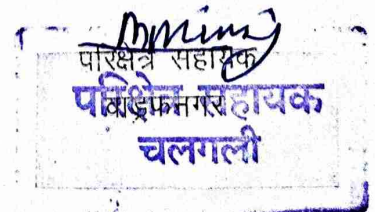 परिक्षेत्र सहायक
वाड्रफनगर
परिक्षेत्र सहायक
चलगली